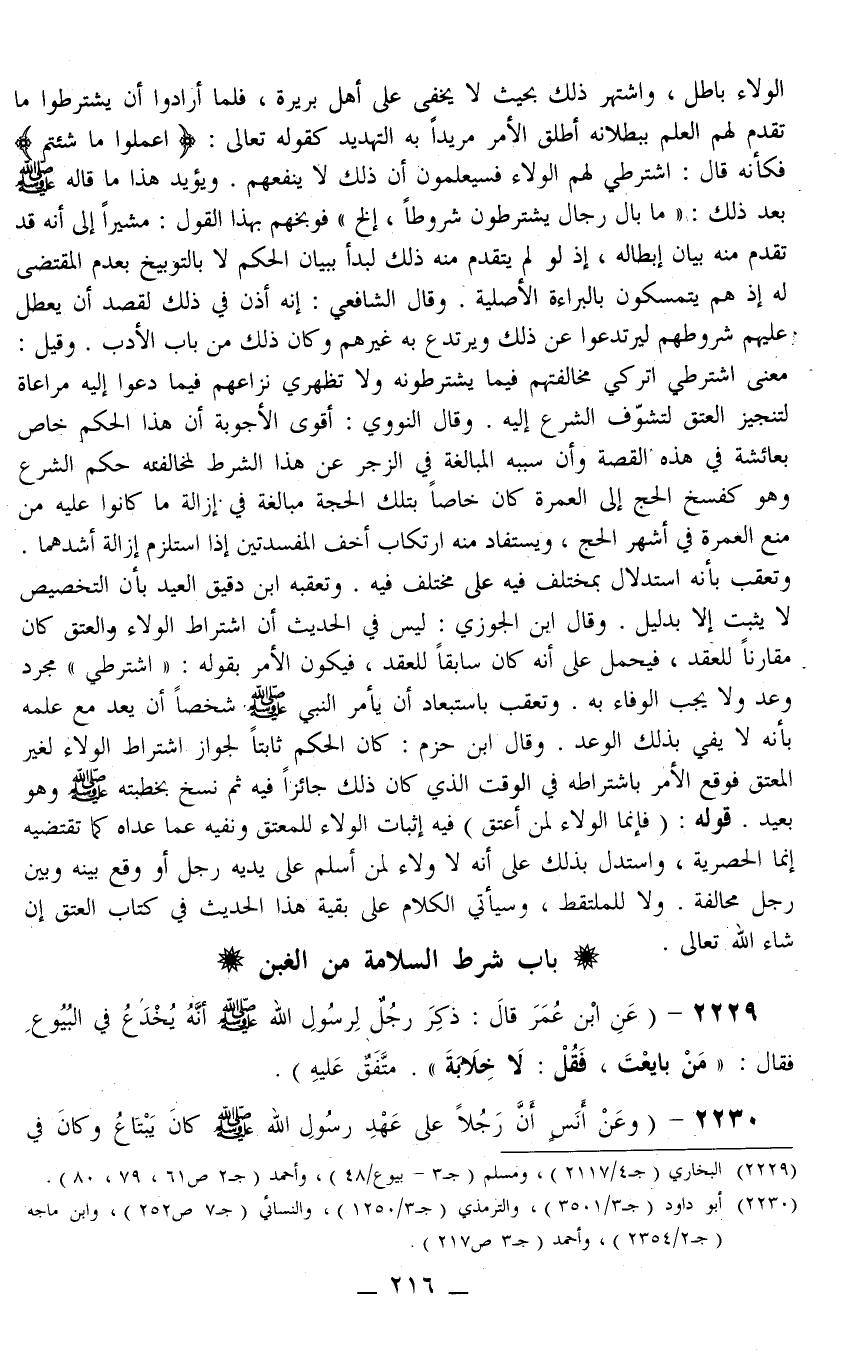 الولاء باطل ، واشتهر ذلك بحيث لا يخفى على أهل بريرة ، فلما أرادوا أن يشترطوا ما
تقدم لهم العلم ببطلانه أطلق الأمر مريداً به التهديد كقوله تعالى : ﴿ اعملوا ما شئتم ﴾
فكأنه قال : اشترطي لهم الولاء فسيعلمون أن ذلك لا ينفعهم . ويؤيد هذا ما قاله ﷺ
بعد ذلك : « ما بال رجال يشترطون شروطاً ، إلخ » فوبخهم بهذا القول : مشيراً إلى أنه قد
تقدم منه بيان إبطاله ، إذ لو لم يتقدم منه ذلك لبدأ ببيان الحكم لا بالتوبيخ بعدم المقتضى
له إذ هم يتمسكون بالبراءة الأصلية . وقال الشافعي : إنه أذن في ذلك لقصد أن يعطل
عليهم شروطهم ليرتدعوا عن ذلك ويرتدع به غيرهم وكان ذلك من باب الأدب . وقيل :
معنى اشترطي اتركي مخالفتهم فيما يشترطونه ولا تظهري نزاعهم فيما دعوا إليه مراعاة
لتنجيز العتق لتشوّف الشرع إليه . وقال النووي : أقوى الأجوبة أن هذا الحكم خاص
بعائشة في هذه القصة وأن سببه المبالغة في الزجر عن هذا الشرط لمخالفته حكم الشرع
وهو كفسخ الحج إلى العمرة كان خاصاً بتلك الحجة مبالغة في إزالة ما كانوا عليه من
منع العمرة في أشهر الحج ، ويستفاد منه ارتكاب أخف المفسدتين إذا استلزم إزالة أشدهما .
وتعقب بأنه استدلال بمختلف فيه على مختلف فيه . وتعقبه ابن دقيق العيد بأن التخصيص
لا يثبت إلا بدليل . وقال ابن الجوزي : ليس في الحديث أن اشتراط الولاء والعتق كان
مقارناً للعقد ، فيحمل على أنه كان سابقاً للعقد ، فيكون الأمر بقوله : « اشترطي » مجرد
وعد ولا يجب الوفاء به . وتعقب باستبعاد أن يأمر النبي ﷺ شخصاً أن يعد مع علمه
بأنه لا يفي بذلك الوعد . وقال ابن حزم : كان الحكم ثابتاً لجواز اشتراط الولاء لغير
المعتق فوقع الأمر باشتراطه في الوقت الذي كان ذلك جائزاً فيه ثم نسخ بخطبته ﷺ وهو
بعيد . قوله : ( فإنما الولاء لمن أعتق ) فيه إثبات الولاء للمعتق ونفيه عما عداه كما تقتضيه
إنما الحصرية ، واستدل بذلك على أنه لا ولاء لمن أسلم على يديه رجل أو وقع بينه وبين
رجل محالفة . ولا للملتقط ، وسيأتي الكلام على بقية هذا الحديث في كتاب العتق إن
شاء الله تعالى .
باب شرط السلامة من الغبن
٢٢٢٩ - ( عَنِ ابْن عُمَرَ قالَ : ذكِرَ رجُلٌ لِرسُولِ الله ﷺ أنَّهُ يُخْدَعُ في البُيُوعِ
فقال : « مَنْ بايعْتَ ، فَقُلْ : لَا خِلَابَةَ » . متَّفَقٌ عَليهِ ) .
٢٢٣٠ - ( وعَنْ أَنَسٍ أَنَّ رَجُلاً على عَهْدِ رسُولِ الله ﷺ كانَ يَبْتَاعُ وكانَ في
(٢٢٢٩) البخاري ( جـ٢١١٧/٤ ) ، ومسلم ( جـ٣ - بيوع/٤٨ ) ، وأحمد ( جـ٢ ص٦١ ، ٧٩ ، ٨٠ ) .
(٢٢٣٠) أبو داود ( جـ٣٥٠١/٣ ) ، والترمذي ( جـ١٢٥٠/٣ ) ، والنسائي ( جـ٧ ص٢٥٢ ) ، وابن ماجه
( جـ٢٣٥٤/٢ ) ، وأحمد ( جـ٣ ص٢١٧ ) .
— ٢١٦ —